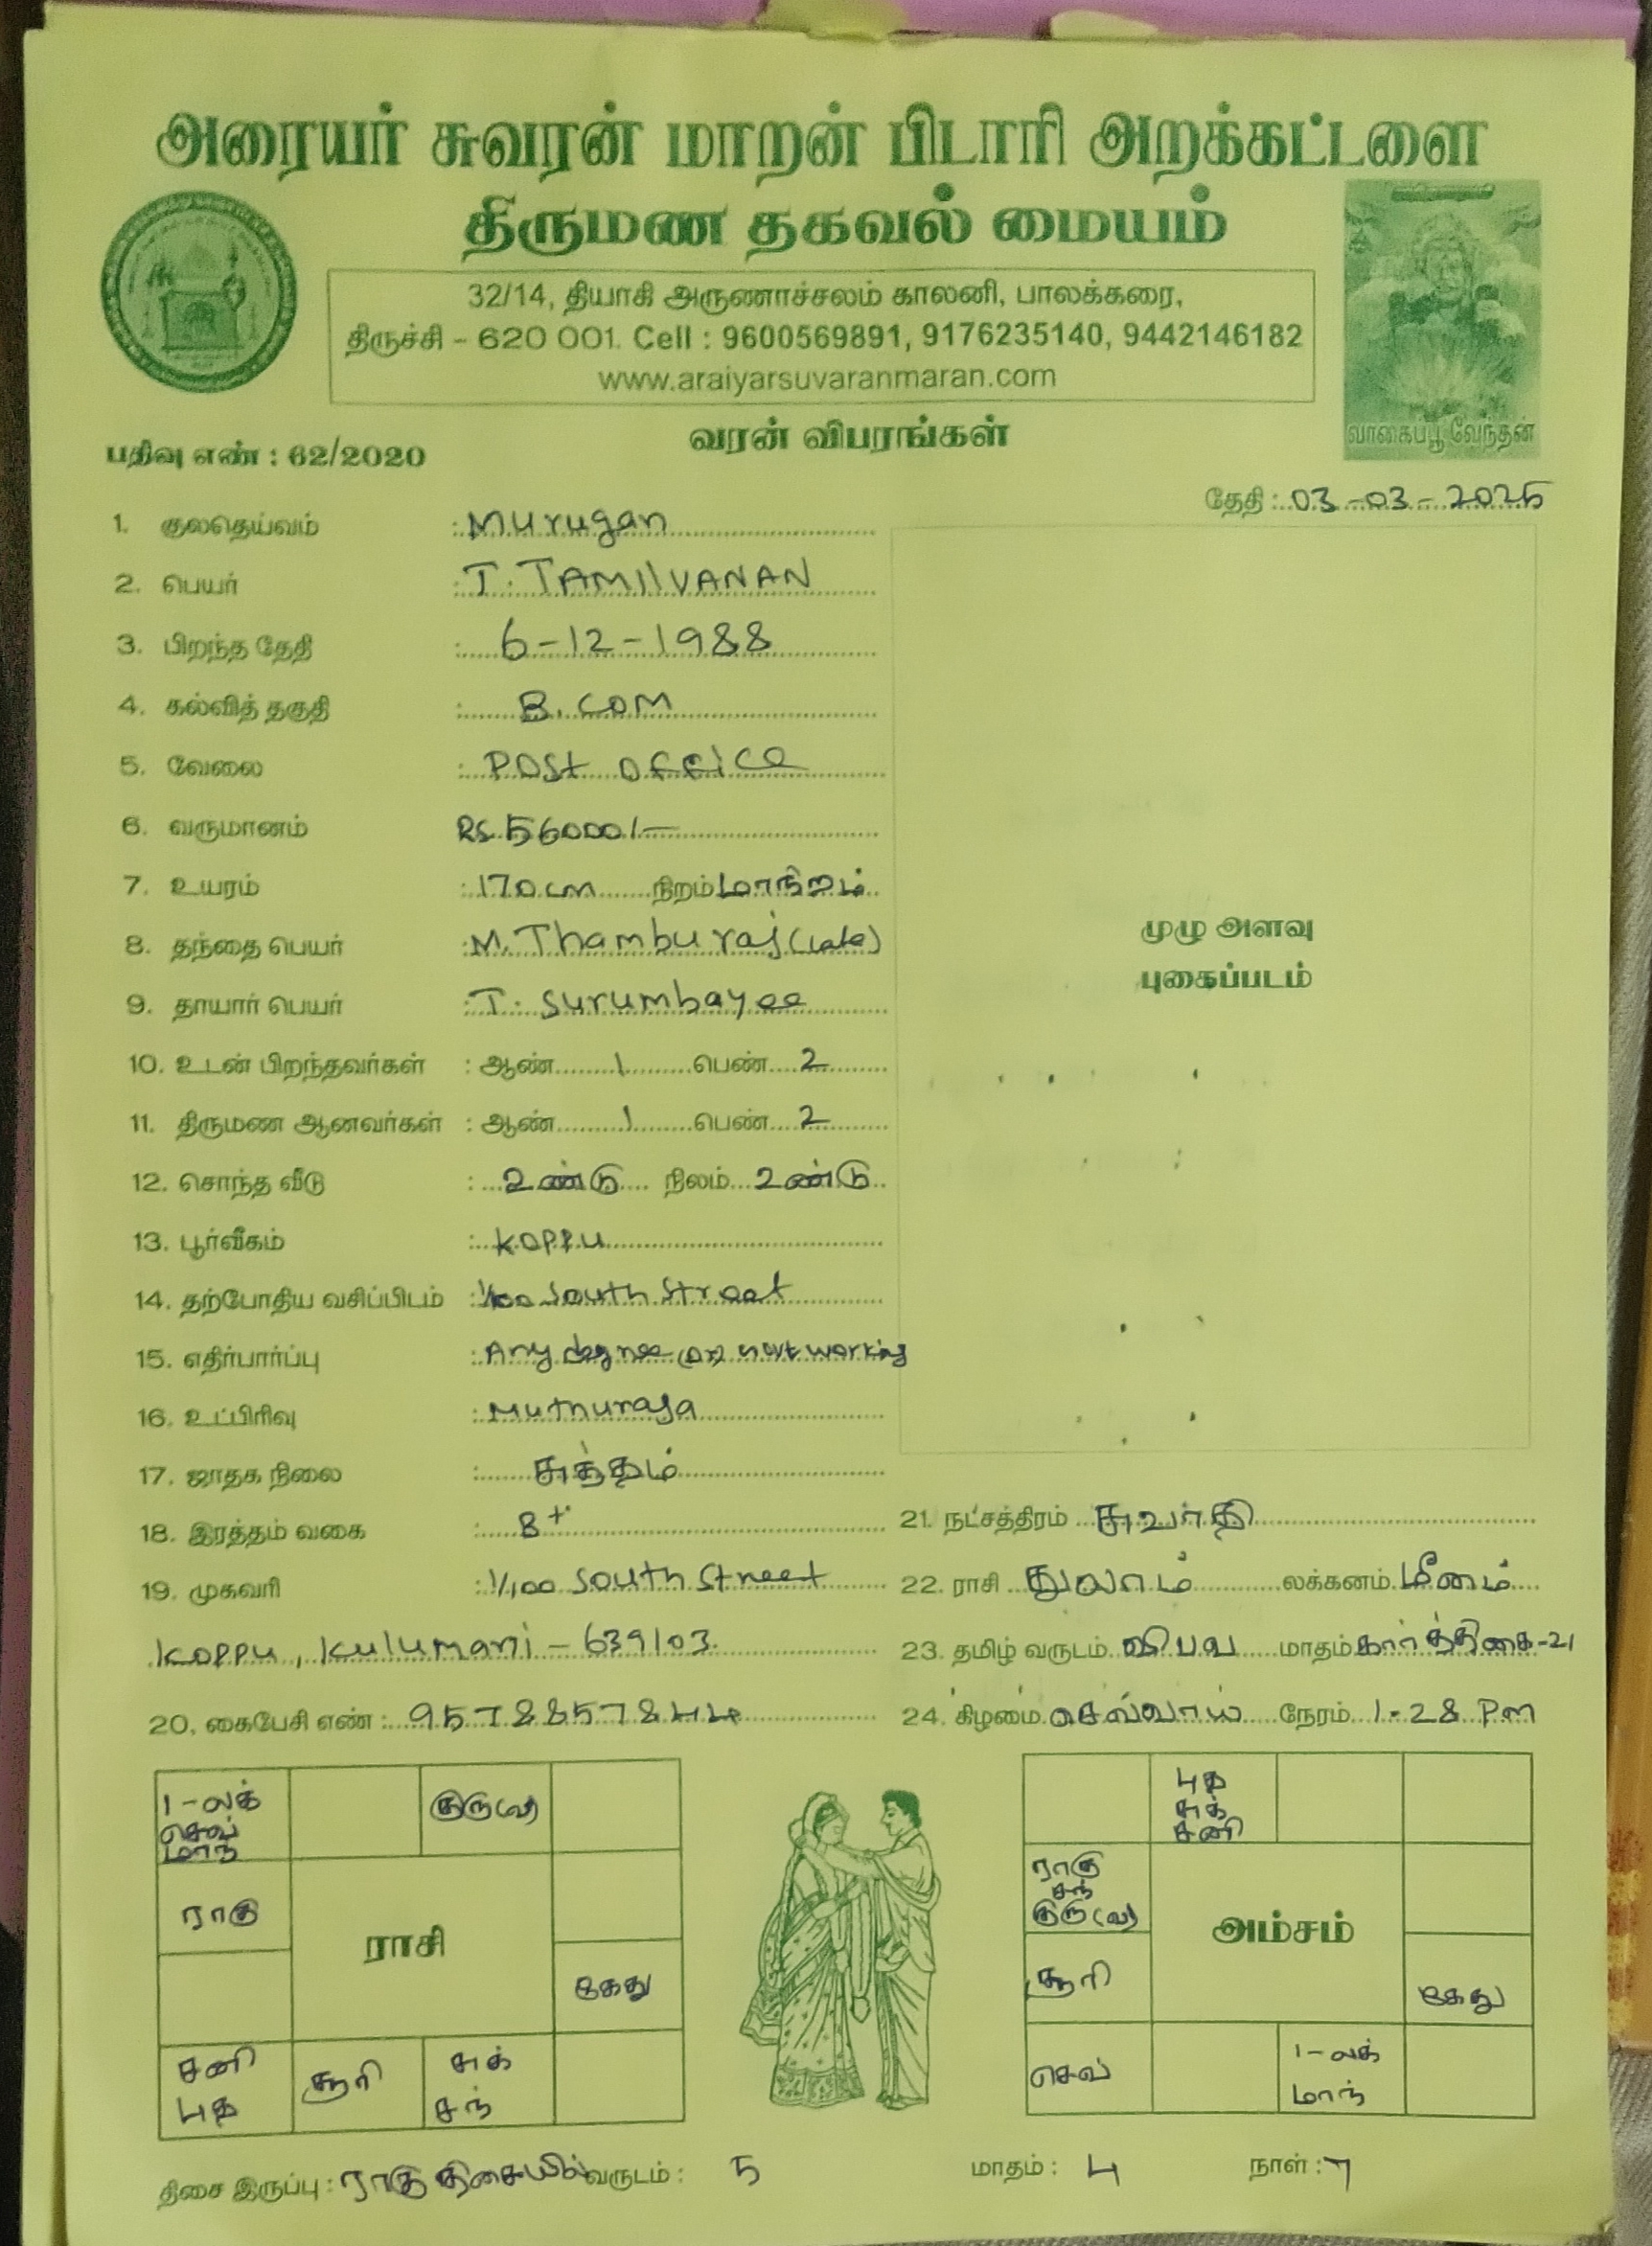 அரையர் சுவரன் மாறன் பிடாரி அறக்கட்டளை
திருமண தகவல் மையம்
32/14, தியாகி அருணாச்சலம் காலனி, பாலக்கரை,
திருச்சி - 620 001. Cell : 9600569891, 9176235140, 9442146182
www.araiyarsuvaranmaran.com
வாகைப்பூ வேந்தன்
வரன் விபரங்கள்
பதிவு எண் : 62/2020
தேதி : 03-03-2025
1. குலதெய்வம் : Murugan
2. பெயர் : T. TAMIlVANAN
3. பிறந்த தேதி : 6-12-1988
4. கல்வித் தகுதி : B.COM
5. வேலை : Post office
6. வருமானம் Rs. 56000/-
7. உயரம் : 170 cm நிறம் மாநிறம்
8. தந்தை பெயர் : M. Thamburaj (Late)
9. தாயார் பெயர் : T. Surumbayee
முழு அளவு
புகைப்படம்
10. உடன் பிறந்தவர்கள் : ஆண் 1 பெண் 2
11. திருமண ஆனவர்கள் : ஆண் 1 பெண் 2
12. சொந்த வீடு : உண்டு நிலம் உண்டு
13. பூர்வீகம் : Koppu
14. தற்போதிய வசிப்பிடம் : 1/100 South Street
15. எதிர்பார்ப்பு : Any degree (or) not working
16. உட்பிரிவு : Muthuraja
17. ஜாதக நிலை : சுத்தம்
18. இரத்தம் வகை : B+
19. முகவரி : 1/100 South Street
Koppu, Kulumani - 639103.
20. கைபேசி எண் : 9578857844
21. நட்சத்திரம் சுவாதி
22. ராசி துலாம் லக்கனம் மீனம்
23. தமிழ் வருடம் விபவ மாதம் கார்த்திகை-21
24. கிழமை செவ்வாய் நேரம் 1-28 Pm
1-லக் செவ் மாந்
குரு(வ)
ராகு
ராசி
கேது
சனி புத
சூரி
சுக் சந்
புத சுக் சனி
ராகு சந் குரு(வ)
அம்சம்
சூரி
கேது
செவ்
1-லக் மாந்
திசை இருப்பு : ராகு திசையில் வருடம் : 5 மாதம் : 4 நாள் : 7